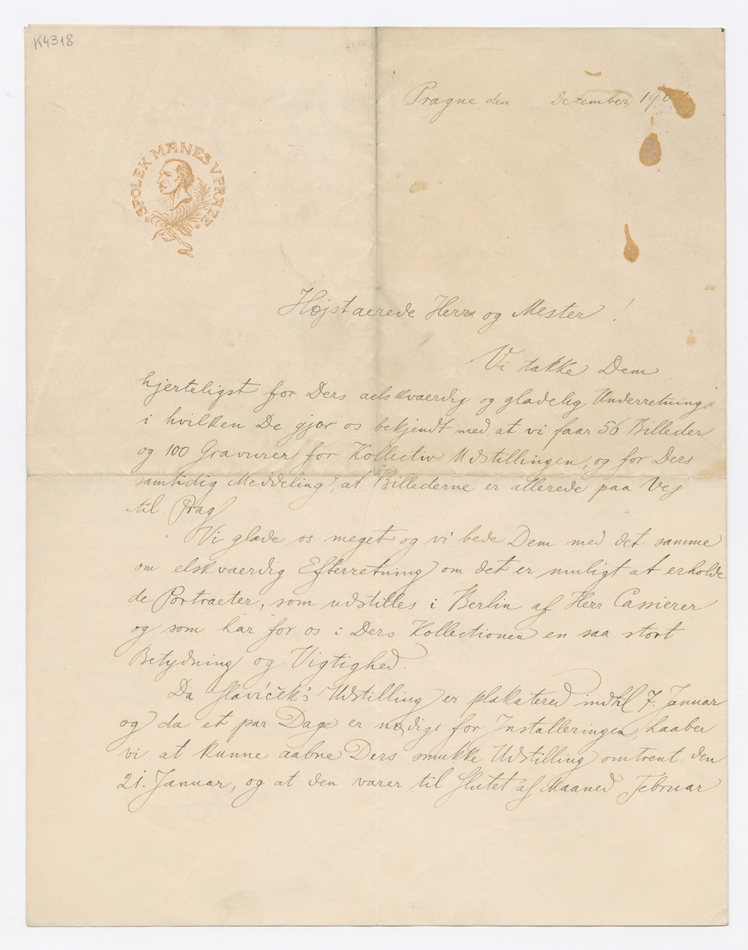 K4318
SPOLEK MANES V PRAZE
Prague den Dezember 190
Højstaerede Herre og Mester!
Vi takke Dem
hjerteligst for Ders aelskvaerdig og gladelig Underretning
i hvilken De gjør os bekjendt med at vi faar 56 Billeder
og 100 Gravurer for Kollectiv Udstillingen, og for Ders
samtidig Meddeling, at Billederne er allerede paa Vej
til Prag
Vi glade os meget og vi bede Dem med det samme
om elskvaerdig Efterretning om det er muligt at erholde
de Portraeter, som udstilles i Berlin af Herr Cassierer
og som har for os i Ders Kollectionen en saa stort
Betydning og Vigtighed.
Da Slavíček's Udstilling er plakatered indtil 7. Januar
og da et par Dage er nødige for Installeringen, haaber
vi at kunne aabne Ders smukke Udstilling omtrent den
21. Januar, og at den varer til Slutet af Maaned Februar